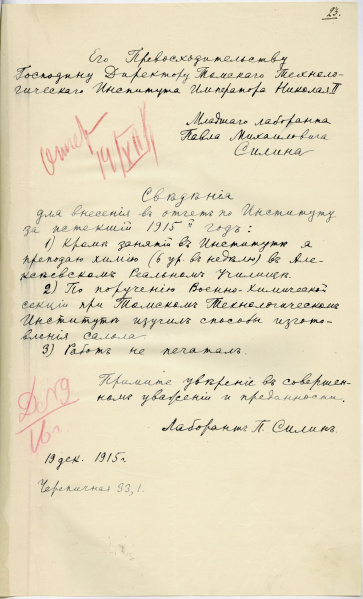 23.
Его Превосходительству
Господину Директору Томскаго Техноло-
гическаго Института Императора Николая II
Младшаго лаборанта
Павла Михайловича
Силина
Свѣдѣнія
для внесенія въ отчетъ по Институту
за истекшій 1915й годъ:
1) Кромѣ занятій въ Институтѣ я
преподаю химію (6 ур. въ недѣлю) въ Але-
ксѣевскомъ Реальномъ Училищѣ.
2) По порученію Военно-Химической
секціи при Томскомъ Технологическомъ
Институтѣ изучилъ способы изгото-
вленія салола.
3) Работъ не печаталъ.
Примите увѣреніе въ совершен-
номъ уваженіи и преданности.
Лаборантъ П. Силинъ.
19 дек. 1915 г
Черепичная 33, 1.